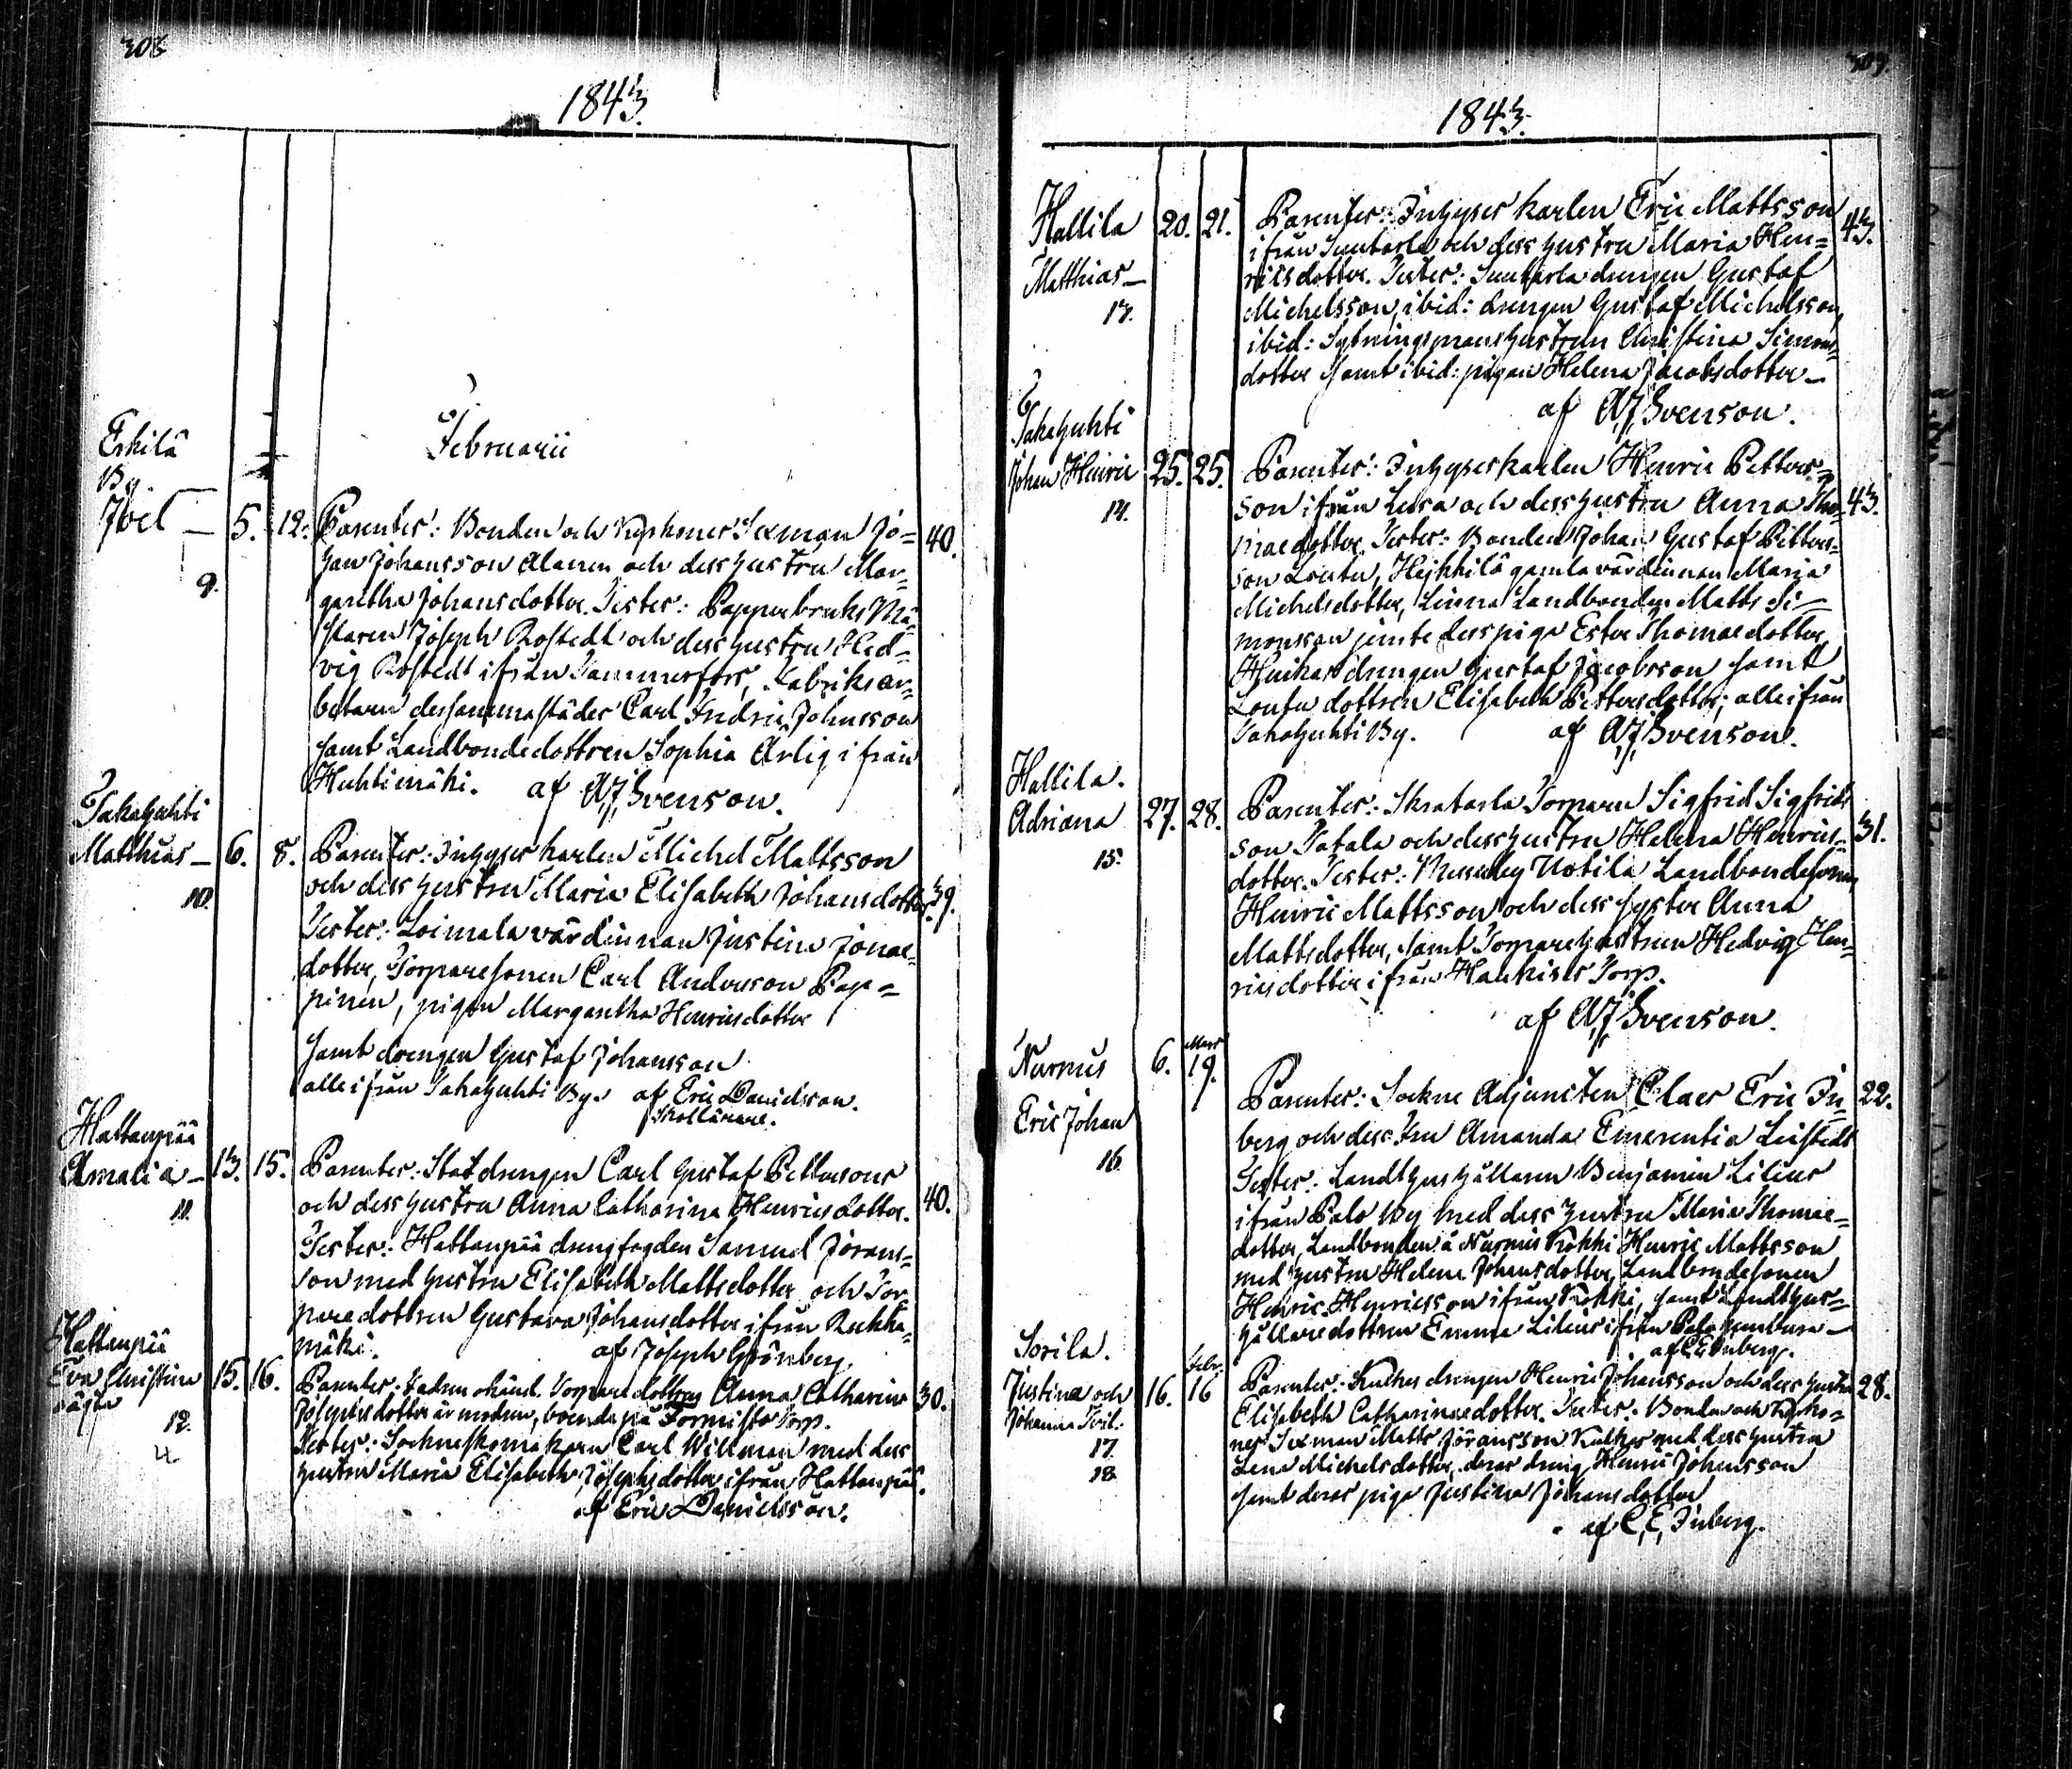 308
1843.
Februarii
Eskilä
By.
Joel — 5. 12. Parenter: Bonden och Kyrkones Sexman Jo=
han Johansson Alanen och dess hustru Mar=
garetha Johansdotter. Tester: Pappersbruks Mä=
staren Joseph Rostedt och dess hustru Hed=
vig Rostedt ifrån Tammerfors, Fabriksar=
betaren dersammastädes Carl Fredric Johnsson
samt Landbondedottren Sophia Ärlig ifrån
Huhtimäki. af A.J. Svenson.
40.
9.
Takahuhti
Matthias — 6. 8. Parenter: Inhyses karlen Michel Mattsson
och dess hustru Maria Elisabeth Johansdotter. 39.
10.
Tester: Loimala värdinnan Justina Jonae=
dotter, Torparesonen Carl Andersson Pap=
pinen, pigan Margaretha Henricsdotter
samt drengen Gustaf Johansson
alle ifrån Takahuhti By. af Eric Danielsson.
Skollärare.
Hattanpää
Amalia — 13. 15. Parenter: Statdrengen Carl Gustaf Pettersons
och dess hustru Anna Catharina Henricsdotter. 40.
11.
Tester: Hattanpää drengfogden Samuel Jörans=
son med hustru Elisabeth Mattsdotter och Tor=
paredottren Gustava Johansdotter ifrån Rukka=
mäki. af Joseph Grönberg.
Hattanpää
Eva Christina 15. 16. Parenter: Fadren okänd. Torparedottren Anna Catharina 30.
oägta
Josephsdotter är modren, boende på Formisto Torp.
12.
Tester: Sockneskomakaren Carl Willman med dess
hustru Maria Elisabeth Josephsdotter ifrån Hattanpää.
af Eric Danielsson.
309.
1843.
Hallila 20. 21. Parenter: Inhyses karlen Eric Mattsson 43.
ifrån och dess hustru Maria Hen=
Matthias —
ricsdotter. Tester: drengen Gustaf
13.
Michelsson, ibid: drengen Gustaf Michelsson,
ibid: Sytningsmanshustrun Christina Simons=
dotter samt ibid: pigan Helena Jacobsdotter —
af A.J. Svenson.
Takahuhti
Johan Henric 25. 25. Parenter: Inhyseskarlen Henric Petters=
14.
son ifrån och dess hustru Anna Tho= 43.
maedotter. Tester: Bonden Johan Gustaf Petters=
son Loutu, Heikkilä gamla värdinnan Maria
Michelsdotter, Linna Landbonden Matts Si=
monsson jemte dess piga Ester Thomaedotter,
drengen Gustaf Jacobsson samt
dottren Elisabeth Pettersdotter; alle ifrån
Takahuhti By. af A.J. Svenson.
Hallila.
Adriana 27. 28. Parenter: Torparen Sigfrid Sigfrids= 31.
15.
son Patala och dess hustru Helena Henrics=
dotter. Tester: Messuby Uotila Landbondesonen
Henric Mattsson och dess syster Anna
Mattsdotter, samt Torparehustrun Hedvig Hen=
ricsdotter ifrån Haukisto Torp.
af A.J. Svenson.
Mars
Nurmis 6. 19.
Eric Johan
16.
Parenter: Sockne Adjuncten Claes Eric In= 22.
berg och dess Fru Amanda Emerentia Leistedt
Tester: Landthushållaren Benjamin Lilius
ifrån Palo By med dess hustru Maria Thomae=
dotter, Landbonden å Nurmis Kokki Henric Mattsson
med hustru Helena Johansdotter, Landbondesonen
Henric Henricsson ifrån Kokki, samt Landthus=
hållaredottren Emma Lilius ifrån Palo —
af C.E. Inberg.
Sorila.
Febr.
Justina och 16. 16 Parenter: Kulkas drengen Henric Johansson och dess hustru 28.
Johanna Tvil:
17.
18.
Elisabeth Catharinaedotter. Tester: Bonden och Kyrko=
nes Sexman Matts Jöransson Kulkas med dess hustru
Lena Michelsdotter, deras dreng Henric Johansson
samt deras piga Justina Johansdotter
af C.E. Inberg.